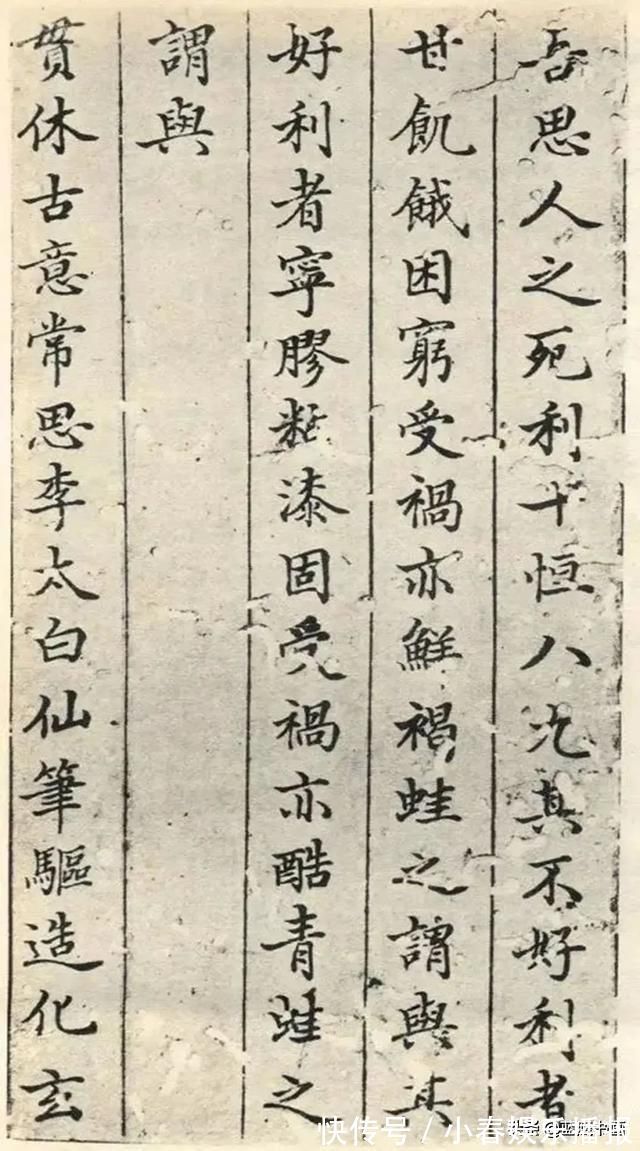 吾思人之死利十恒八九其不好利者
甘飢餓困窮受禍亦鮮褐蛙之謂與其
好利者寧膠粘漆固受禍亦酷青蛙之
謂與
貫休古意常思李太白仙筆驅造化玄
快传号／小春娱乐播报